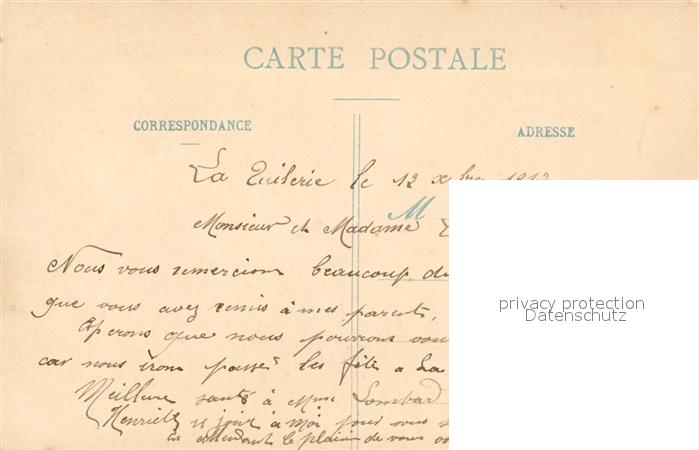 CARTE POSTALE
CORRESPONDANCE
ADRESSE
La Tuilerie le 12 xbre 1912
M
Monsieur et Madame
Nous vous remercions beaucoup du
que vous avez remis à mes parents,
Esperons que nous pourrons vous
car nous irons passé les fête a La
Meilleure santé à Mme Lombard
Henriette se joint à moi pour vous
En attendant le plaisir de vous
privacy protection
Datenschutz